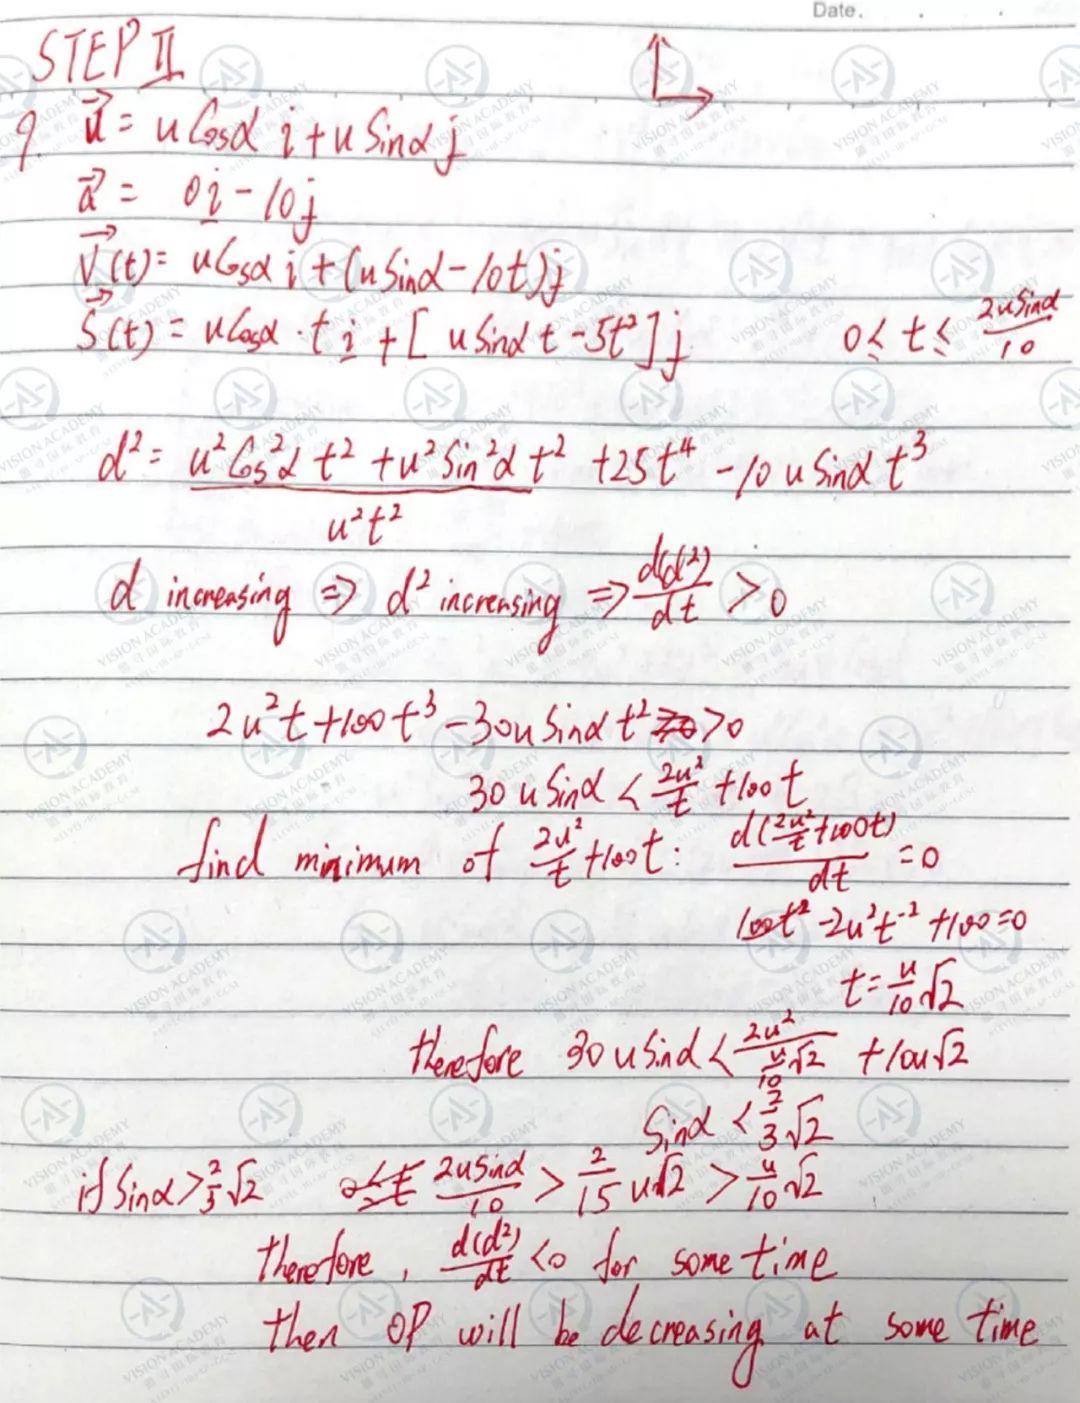 Date.
STEP II
9. u⃗ = u Cosα i + u Sinα j
a⃗ = 0i - 10j
V⃗(t) = uCosα i + (uSinα - 10t)j
S⃗(t) = uCosα · t i + [ uSinα t - 5t² ] j    0 ≤ t ≤ 2uSinα/10
d² = u²Cos²α t² + u²Sin²α t² + 25t⁴ - 10uSinα t³
u²t²
d increasing ⇒ d² increasing ⇒ d(d²)/dt > 0
2u²t + 100t³ - 30uSinα t² > 0
30uSinα < 2u²/t + 100t
find minimum of 2u²/t + 100t : d(2u²/t + 100t)/dt = 0
-2u²t⁻² + 100 = 0
t = u/10 √2
therefore 30uSinα < 2u²/(u/10 √2) + 10u√2
Sinα < 2/3 √2
if Sinα > 2/3 √2    2uSinα/10 > 2/15 u√2 > u/10 √2
therefore, d(d²)/dt < 0 for some time
then OP will be decreasing at some time
VISION ACADEMY